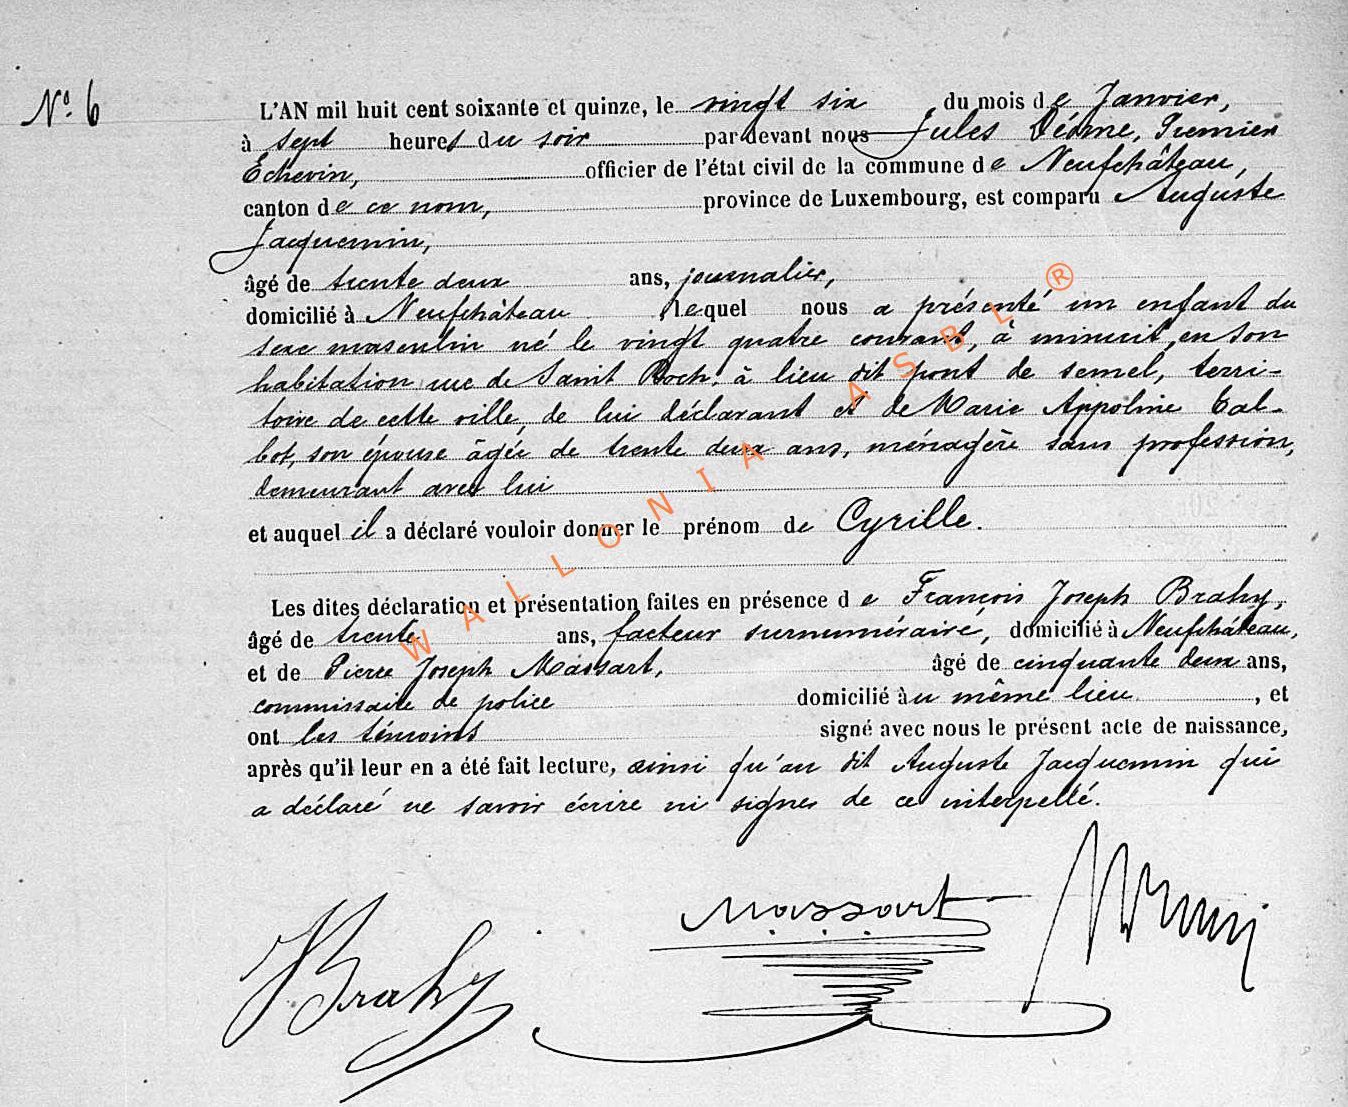 N° 6
L'AN mil huit cent soixante et quinze, le vingt six du mois de Janvier,
à sept heures du soir par devant nous Jules Premier
Echevin, officier de l'état civil de la commune de Neufchâteau,
canton de ce nom, province de Luxembourg, est comparu Auguste
Jacquemin,
âgé de trente deux ans, journalier,
domicilié à Neufchâteau lequel nous a présenté un enfant du
sexe masculin né le vingt quatre courant, à minuit, en son
habitation rue de Saint Roch, à lieu dit pont de semel, terri-
toire de cette ville, de lui déclarant et de Marie Appoline Tal-
bot, son épouse âgée de trente deux ans, ménagère sans profession,
demeurant avec lui
et auquel il a déclaré vouloir donner le prénom de Cyrille.
Les dites déclaration et présentation faites en présence de François Joseph Brahy,
âgé de trente ans, facteur surnuméraire, domicilié à Neufchâteau,
et de Pierre Joseph Massart, âgé de cinquante deux ans,
commissaire de police domicilié au même lieu, et
ont les témoins signé avec nous le présent acte de naissance,
après qu'il leur en a été fait lecture, ainsi qu'au dit Auguste Jacquemin qui
a déclaré ne savoir écrire ni signer de ce interpellé.
Massart
Brahy
WALLONIA ASBL ®